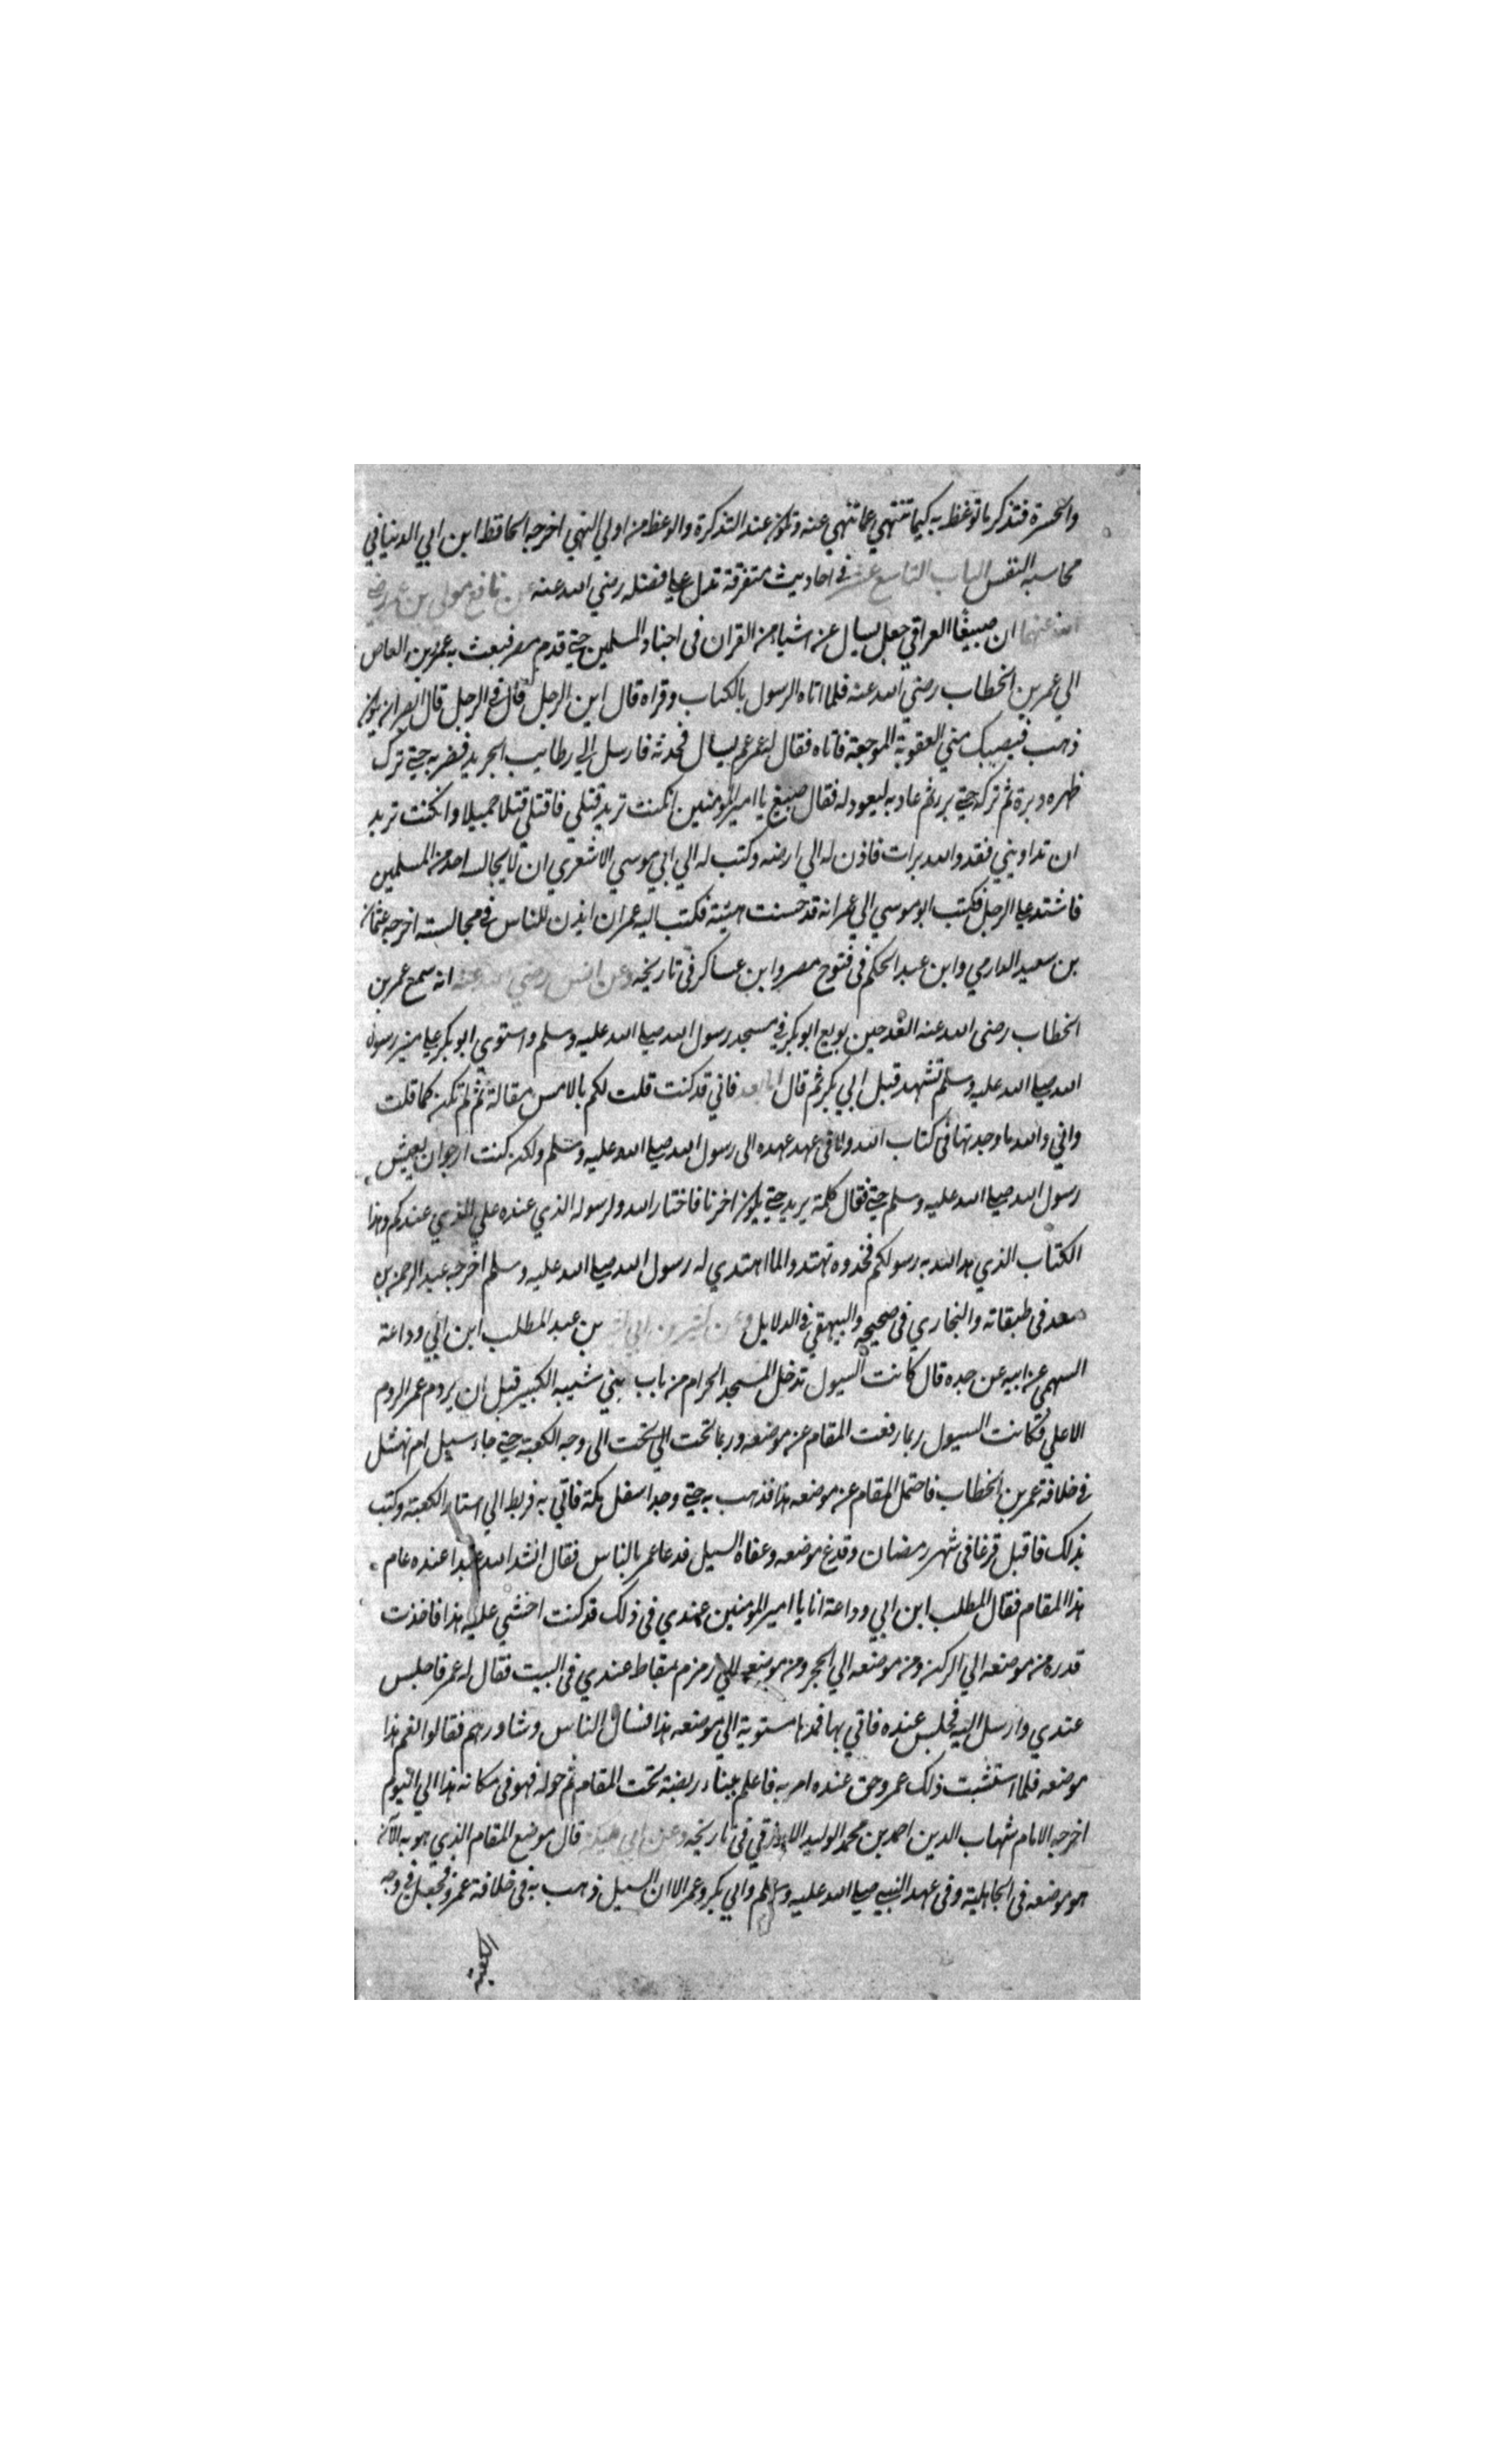 والحسرة فتذكر ما توعظ به كيما تنتهي عما تنهي عنه وتكون عند التذكرة والوعظ من اولي النهي اخرجه الحافظ ابن ابي الدنيا في
محاسبة النفس الباب التاسع عشر في احاديث متفرقة تدل علي فضله رضي الله عنه عن نافع مولي بن عمر رضي
الله عنهما ان صبيغا العراقي جعل يسال عن اشياء من القران في اجناد المسلمين حتي قدم مصر فبعث به عمرو بن العاص
الي عمر بن الخطاب رضي الله عنه فلما اتاه الرسول بالكتاب وقراه قال اين الرجل قال في الرحل قال ابصر ان يكون
ذهب فيصيبك مني العقوبة الموجعة فاتاه فقال له عمر عم يسال فحدثه فارسل الي رطايب الجريد فضربه حتي ترك
ظهره دبرة ثم تركه حتي برء ثم عاد به ليعود له فقال صبيغ يا امير المومنين ان كنت تريد قتلي فاقتلني قتلا جميلا وان كنت تريد
ان تداويني فقد والله برات فاذن له الي ارضه وكتب له الي ابي موسي الاشعري ان لا يجالسه احد من المسلمين
فاشتد علي الرجل فكتب ابو موسي الي عمر انه قد حسنت هيئته فكتب اليه عمر ان ايذن للناس في مجالسته اخرجه عثمان
بن سعيد الدارمي وابن عبد الحكم في فتوح مصر وابن عساكر في تاريخه وعن انس رضي الله عنه انه سمع عمر بن
الخطاب رضي الله عنه الغد حين بويع ابو بكر في مسجد رسول الله صلي الله عليه وسلم واستوي ابو بكر علي منبر رسول
الله صلي الله عليه وسلم تشهد قبل ابي بكر ثم قال اما بعد فاني قد كنت قلت لكم بالامس مقالة ثم لم تكن كما قلت
واني والله ما وجدتها في كتاب الله ولا في عهد عهده الي رسول الله صلي الله عليه وسلم ولكن كنت ارجو ان يعيش
رسول الله صلي الله عليه وسلم حتي فقال كلمة يريد حتي يكون اخرنا فاختار الله ولرسوله الذي عنده علي الذي عندكم وهذا
الكتاب الذي هدا الله به رسولكم فخذوه تهتدوا لما اهتدي له رسول الله صلي الله عليه وسلم اخرجه عبد الرحمن بن
سعد في طبقاته والبخاري في صحيحه والبيهقي في الدلايل وعن كثير بن ابي كثير بن عبد المطلب ابن ابي وداعة
السهمي عن ابيه عن جده قال كانت السيول تدخل المسجد الحرام من باب بني شيبه الكبير قبل ان يردم عمر الردم
الاعلي فكانت السيول ربما رفعت المقام عن موضعه وربما تحت الي تحت الي وجه الكعبة حتي جاء سيل ام نهشل
في خلافة عمر بن الخطاب فاحتمل المقام عن موضعه هذا فذهب به حتي وجد اسفل مكة فاتي به فربط الي استار الكعبة وكتب
بذلك فاقبل فزعا في شهر رمضان وقد غ موضعه وعفاه السيل فدعا عمر بالناس فقال انشد الله عبدا عنده عام
هذا المقام فقال المطلب ابن ابي وداعة انا يا امير المومنين عندي في ذلك قد كنت اخشي عليه هذا فاخذت
قدره من موضعه الي الركن ومن موضعه الي الحجر ومن موضعه الي زمزم بمقاط عندي في البيت فقال له عمر فاجلس
عندي وارسل اليه فجلس عنده فاتي بها فمدها مستوية الي موضعه هذا فسال الناس وشاورهم فقالوا نعم هذا
موضعه فلما استثبت ذلك عمر وحق عنده امر به فاعلم ببناء ربضبه تحت المقام ثم حوله فهو في مكانه هذا الي اليوم
اخرجه الامام شهاب الدين احمد بن محمد الوليد الازرقي في تاريخه وعن ابي مليكة قال موضع المقام الذي هو به الآن
هو موضعه في الجاهلية وفي عهد النبي صلي الله عليه وسلم وابي بكر وعمر الا ان السيل ذهب به في خلافة عمر فجعل في وجه
الكعبة